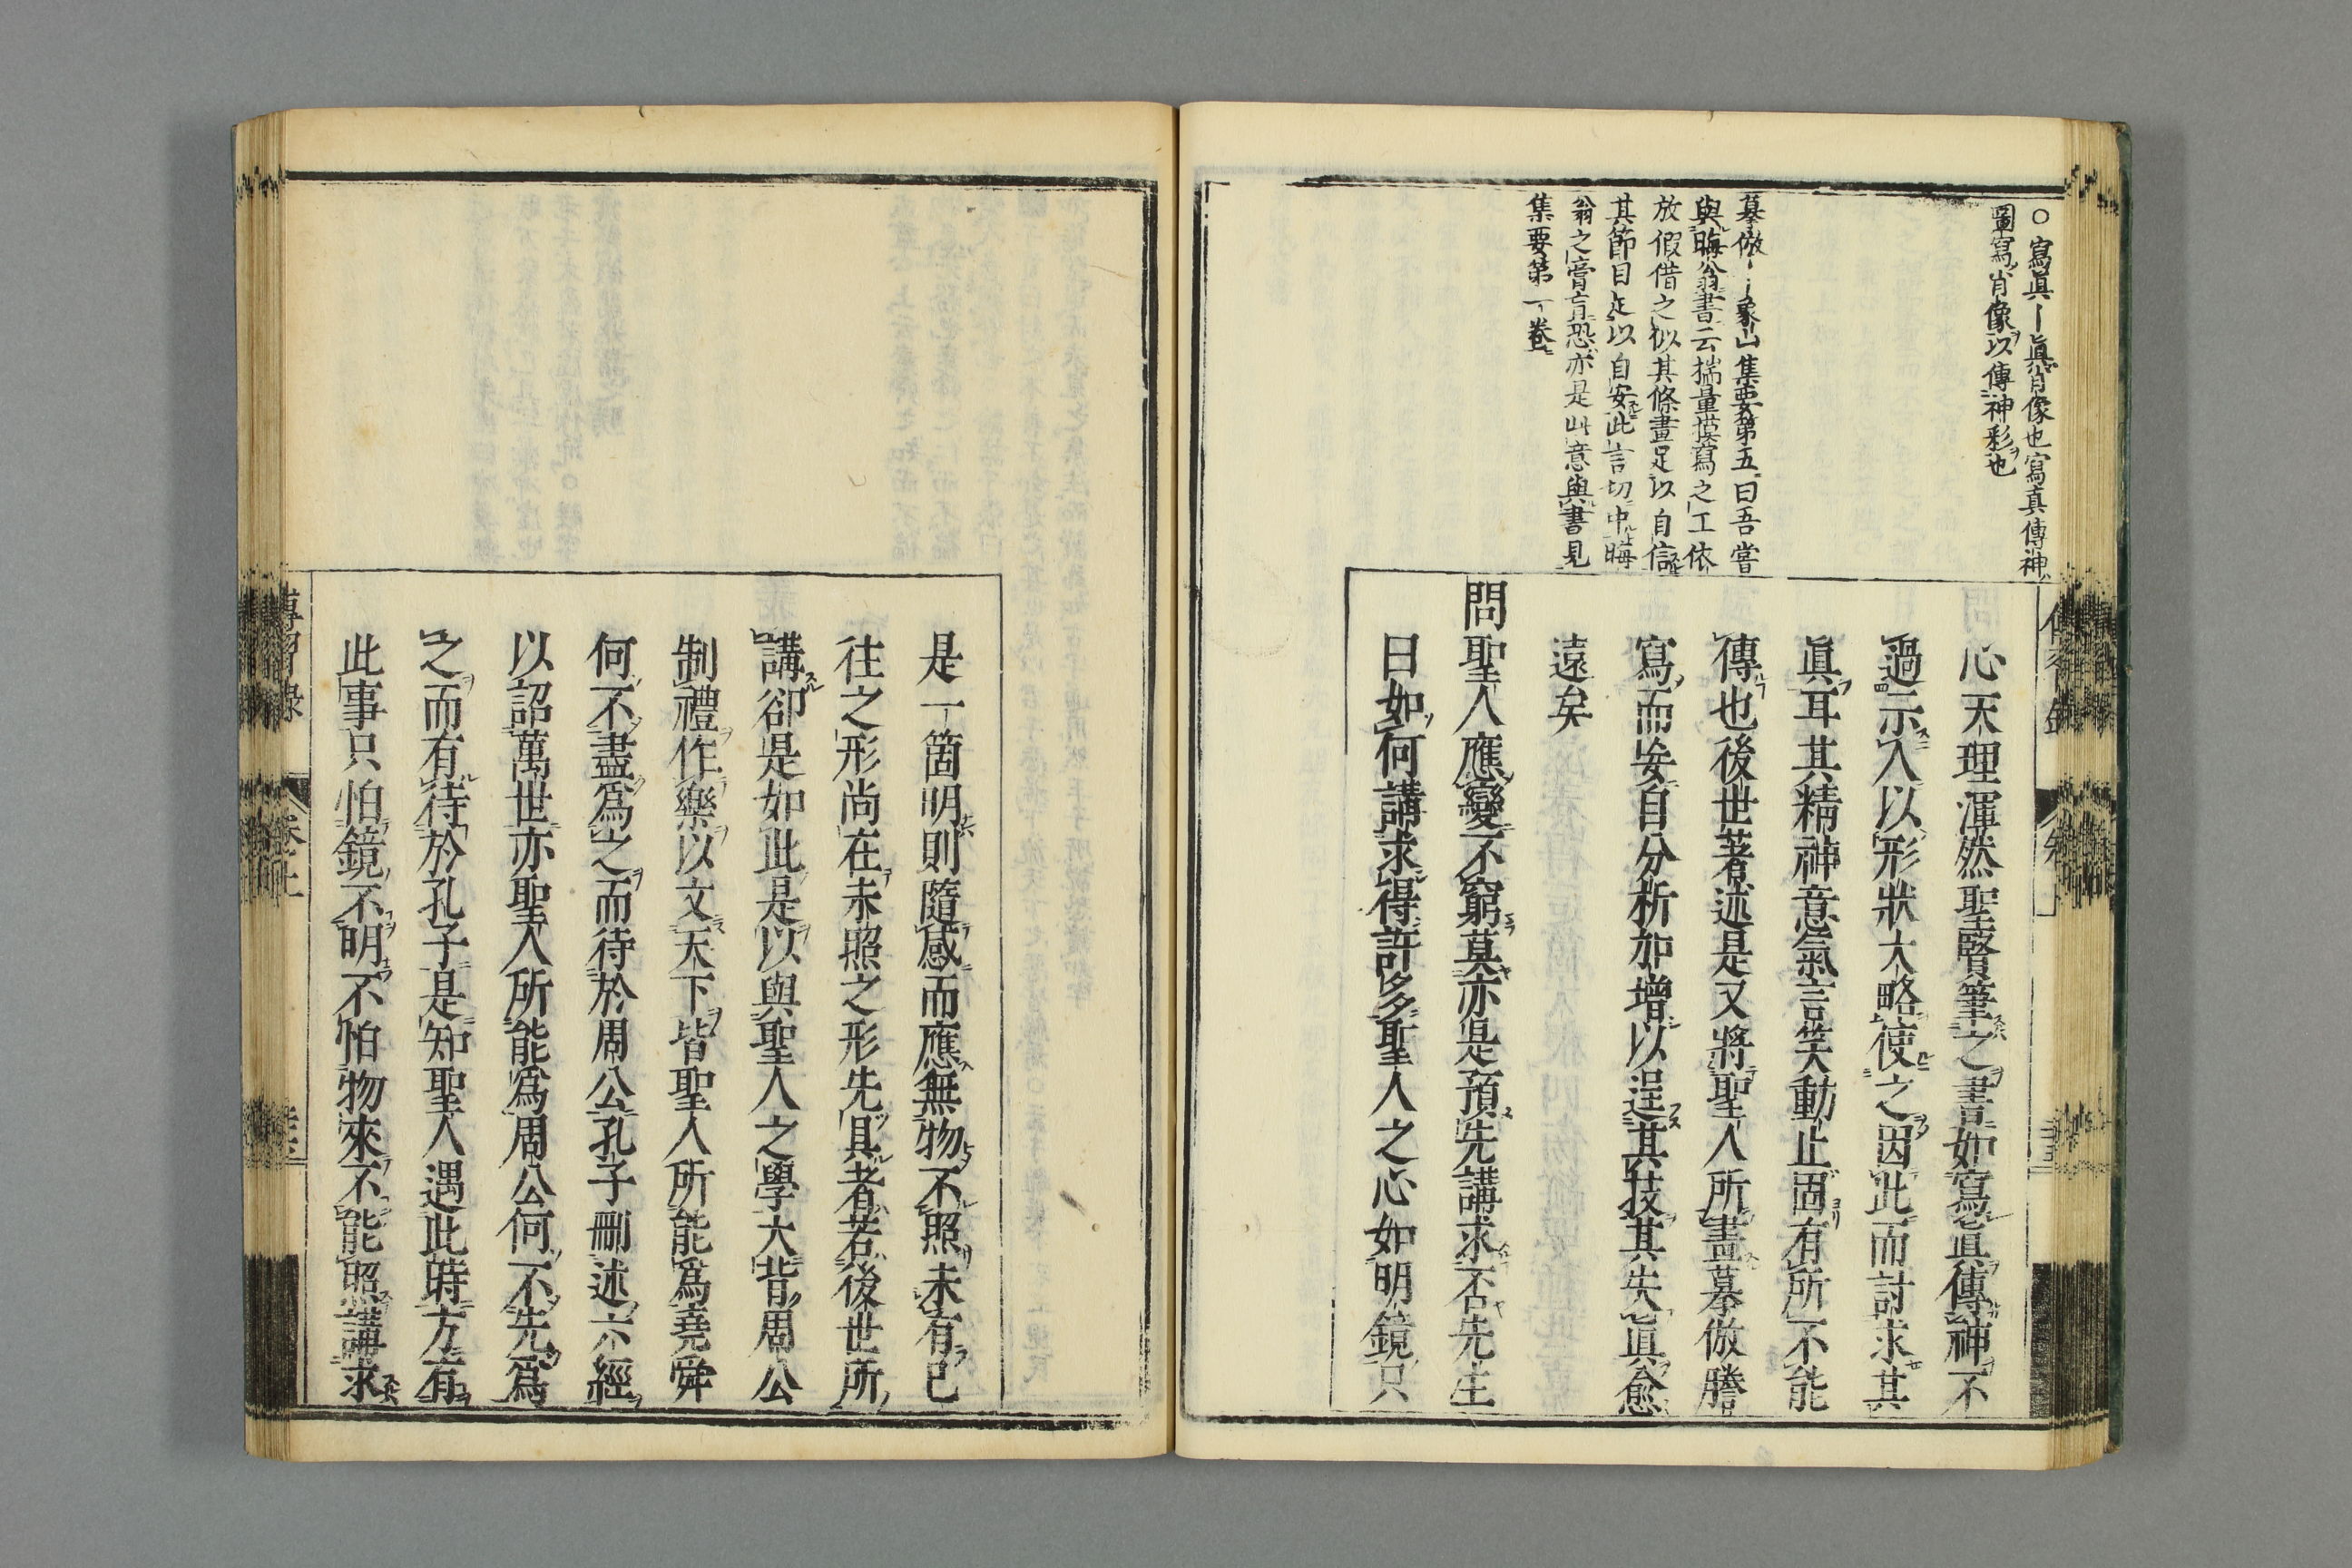 ○寫眞丨眞肖像也寫真傳神
圖寫肖像以傳神彩也
摹倣丨丨象山集要第五曰吾嘗
與晦翁書云揣量摸寫之工依
放假借之似其條畫足以自信
其節目足以自安此言切中晦
翁之膏肓恐亦是此意與書見
集要第一卷
心天理渾然聖賢筆之書如寫眞傳神不
過示人以形狀大略使之因此而討求其
眞耳其精神意氣言笑動止固有所不能
傳也後世著述是又將聖人所畫摹倣謄
寫而妄自分析加增以逞其技其失眞愈
遠矣
問聖人應變不窮莫亦是預先講求否先生
曰如何講求得許多聖人之心如明鏡只
是一箇明則隨感而應無物不照未有已
往之形尚在未照之形先具者若後世所
講卻是如此是以與聖人之學大背周公
制禮作樂以文天下皆聖人所能爲堯舜
何不盡爲之而待於周公孔子刪述六經
以詔萬世亦聖人所能爲周公何不先爲
之而有待於孔子是知聖人遇此時方有
此事只怕鏡不明不怕物來不能照講求
傳習錄 卷上